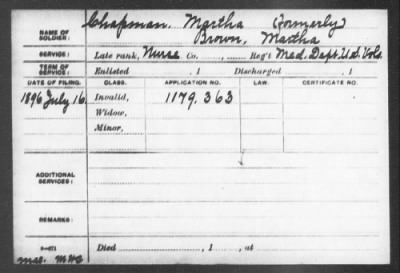 Chapman, Martha (Formerly)
NAME OF SOLDIER: Brown, Martha
SERVICE: Late rank, Nurse Co. ......, ...... Reg't Med. Dept. U.S. Vols.
TERM OF SERVICE: Enlisted , 1 Discharged , 1
DATE OF FILING. CLASS. APPLICATION NO. LAW. CERTIFICATE NO.
1896 July 16 Invalid, 1179.363
Widow,
Minor,
ADDITIONAL SERVICES:
REMARKS:
3-671 Died , 1 , at